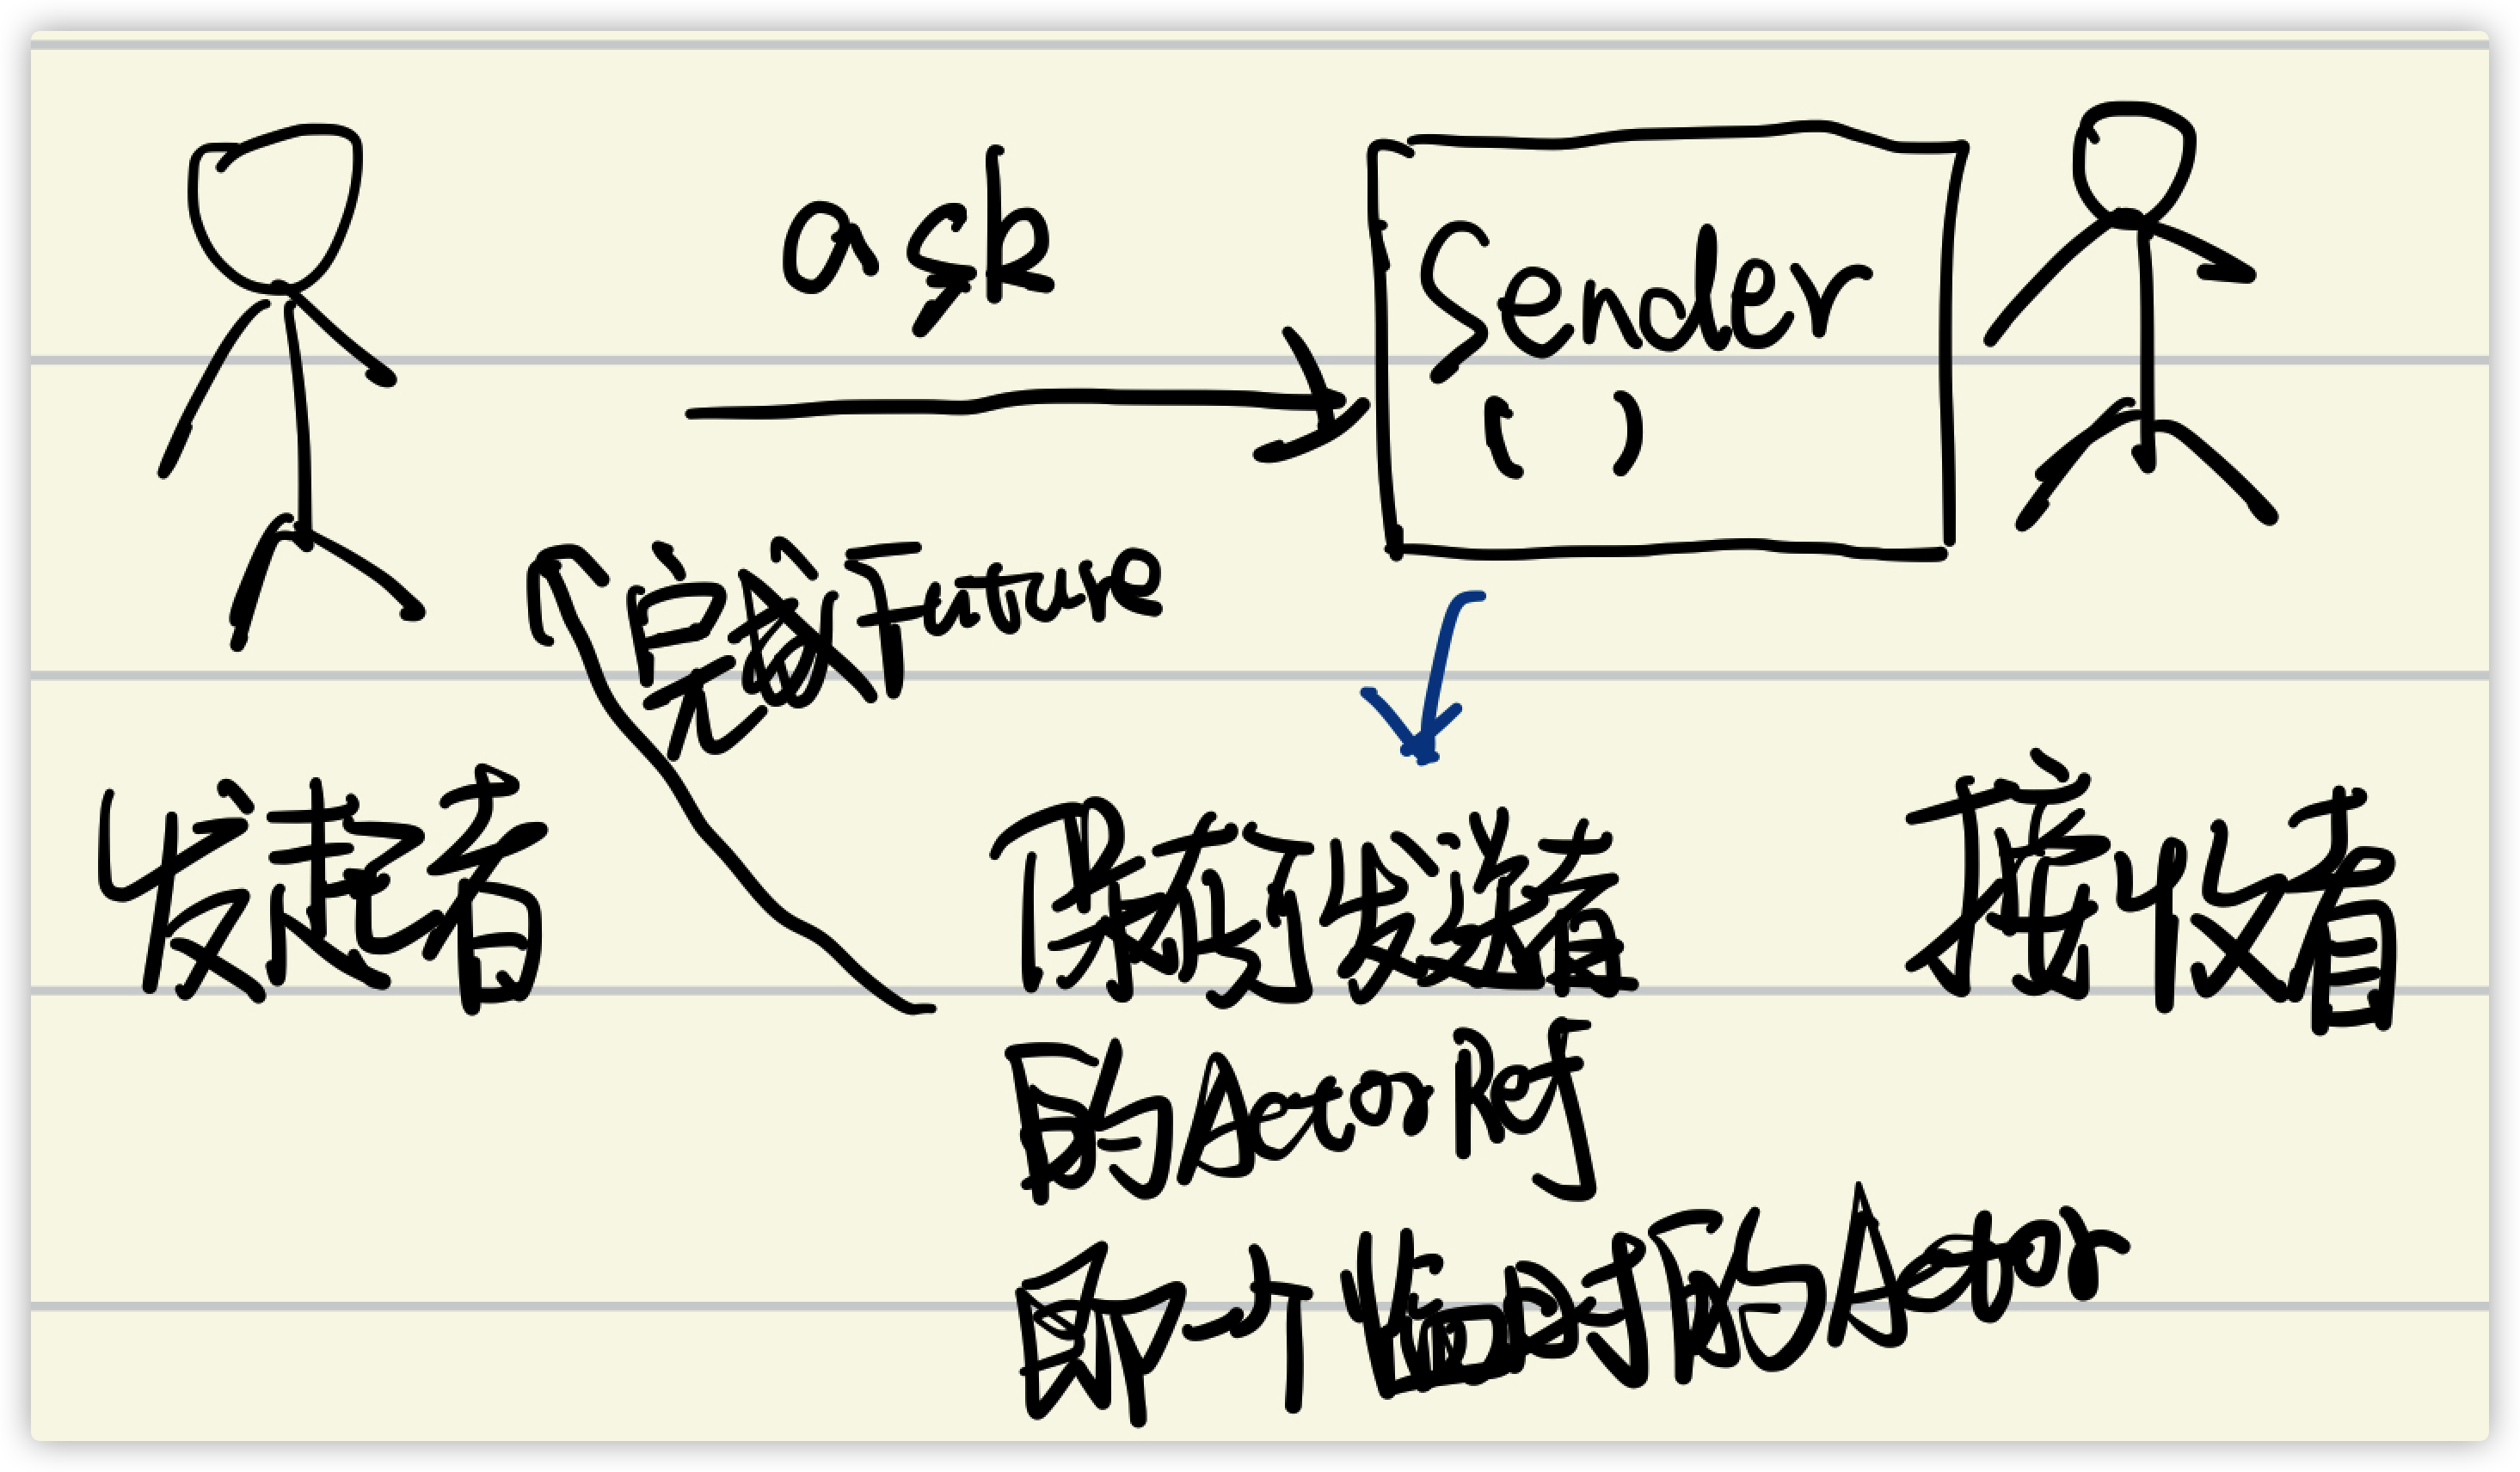 ask
Sender
( )
完成Future
发起者
保存了发送者
接收者
的ActorRef
即一个临时的Actor